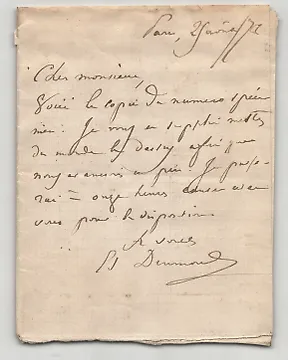 Paris, 2
Cher monsieur,
Voici la copie du numero spéci
men. Je vous en supplie mettez
du monde là dessus afin que
nous avancions un peu. Je passe
rai à onze heures causer avec
vous pour la disposition.
A vous
Ed Drumont